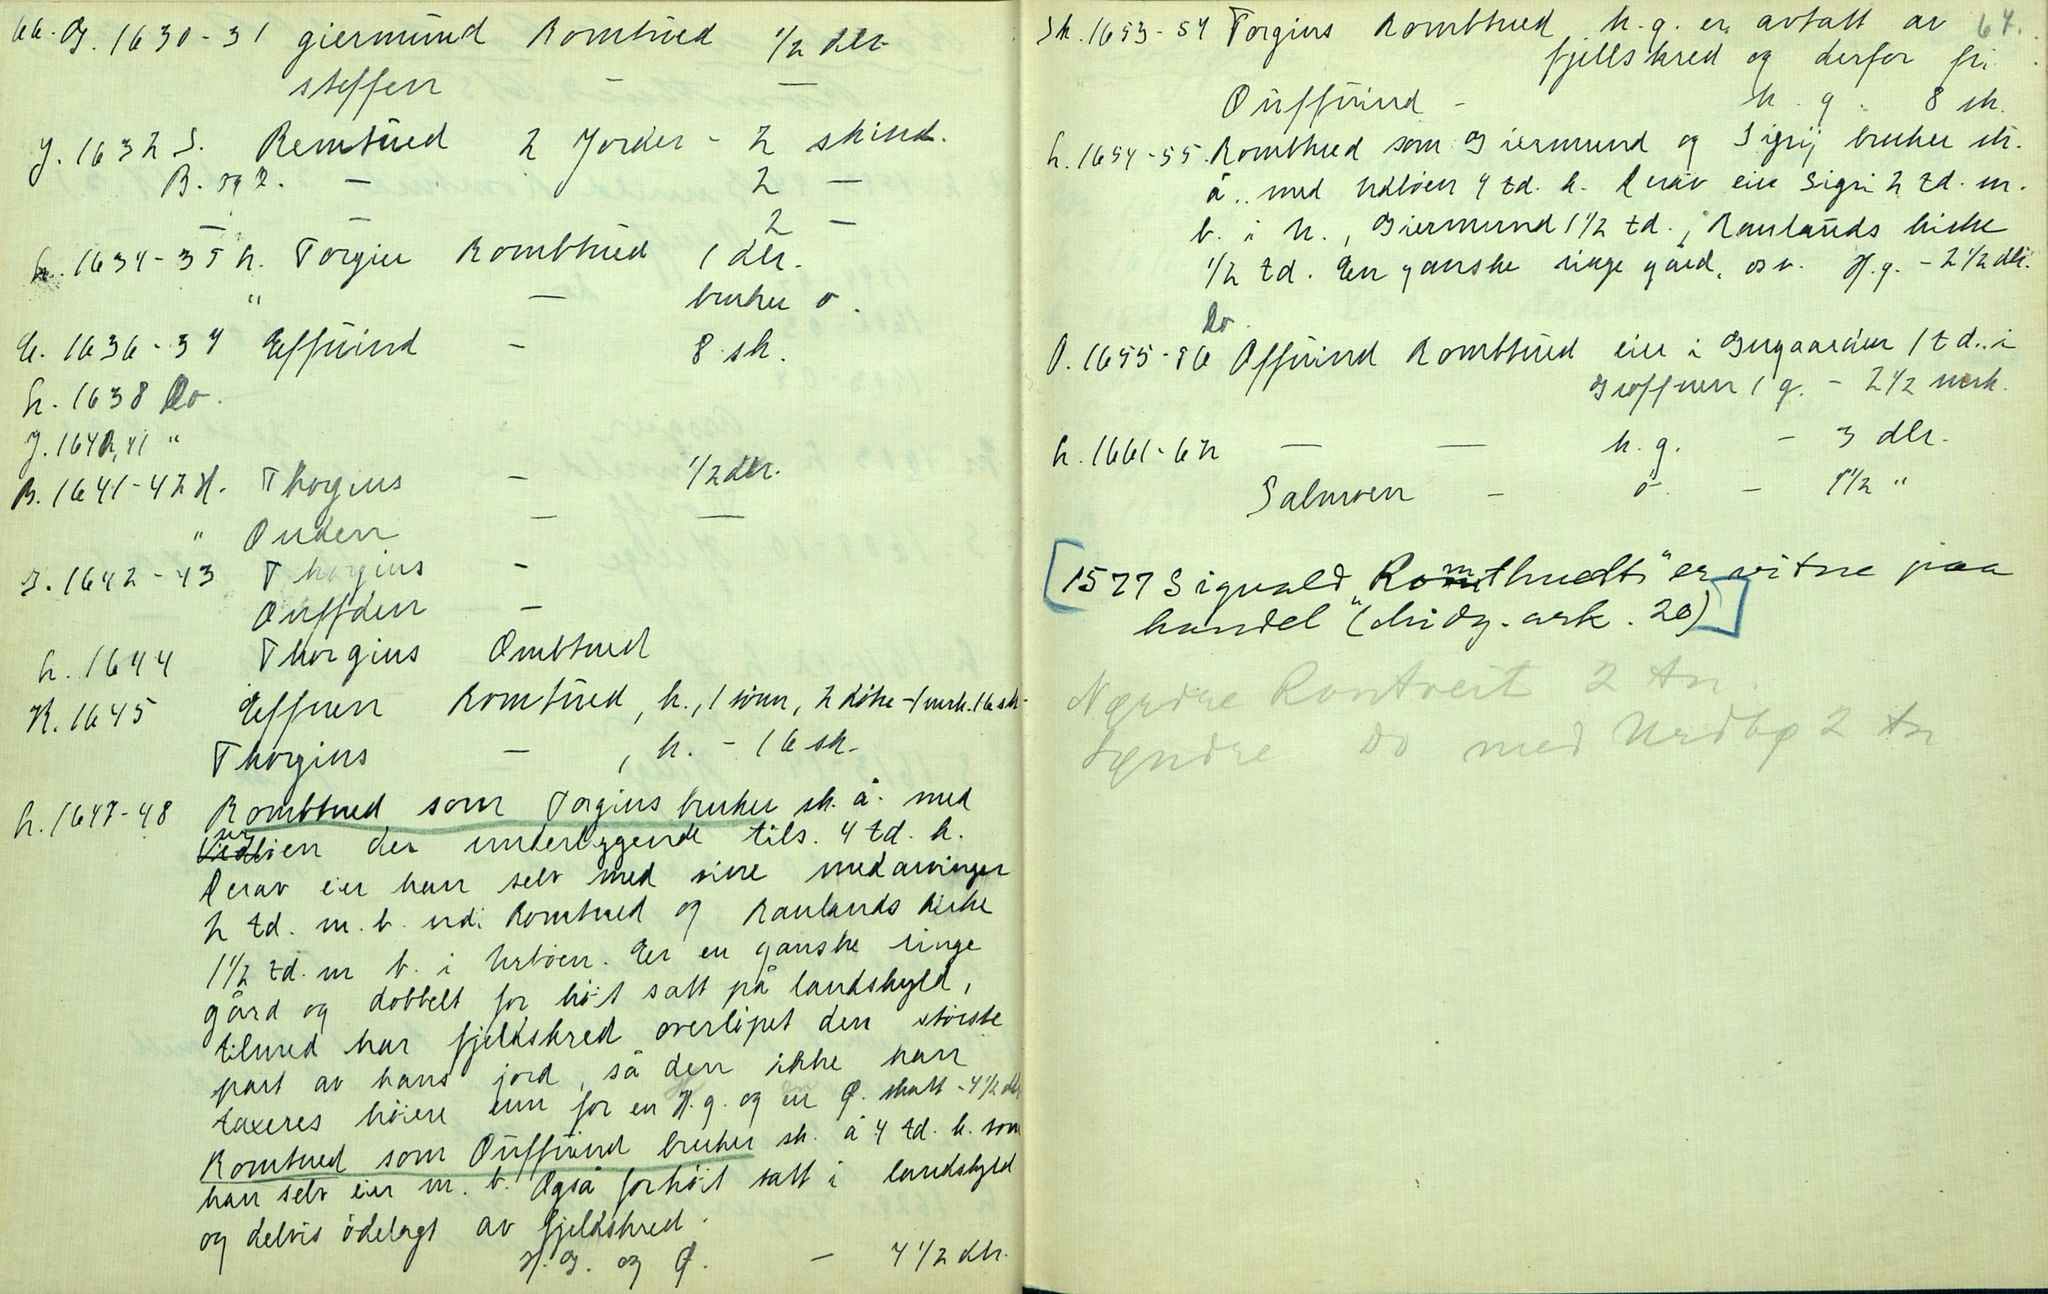 kk. Og. 1630-31 giermund Romtued 1/2 dlr
steffen — —
J. 1632 S. Remtued 2 Jorder - 2 skind.
B. og 2. — 2 —
— — 2 —
h. 1634-35 h. Torgiu Rombtued 1 dlr.
" — bruker ø.
E. 1636-37 Effuind - 8 sk.
h. 1638 Do.
J. 1640, 41 "
B. 1641-42 H. Thorgius - 1/2 dlr.
" Ouden — —
J. 1642-43 Thorgius -
Ouffden -
h. 1644 Thorgius Ombtued
K. 1645 Effuen Romtued, k., 1 sönn, 2 dötre - 1 mrk. 16 sk -
Thorgius — , k. - 16 sk.
h. 1647-48 Rombtued som Torgius bruker sk. å. med
ur böen der underliggende tils. 4 td. k.
Derav eier han selv med sine medarvinger
2 td. m. b. udi Romtued og Raulands kirke
1 1/2 td. m b. i Urböen. Er en ganske ringe
gård og dobbelt for höit satt på landskyld,
tilmed har fjeldskred overlöpet den störste
part av hans jord, så den ikke kan
taxeres höiere enn for en H. g. og en Ø. skatt - 4 1/2 dlr
Romtued som Ouffuind bruker sk. å 4 td. k. som
han selv eier m. b. Også for höit satt i landskyld
og delvis ödelagt av fjeldskred.
H. G. og Ø. — 4 1/2 dlr.
Sk. 1653-54 Torgius Rombtued h. g. er avfalt av 64.
fjellskred og derfor fri.
Ouffuind - h. g. 8 sk.
h. 1654-55. Rombtued som Giermund og Sigrij bruker sk.
å.. med Urdböen 4 td. k. Derav eier Sigri 2 td. m.
b. i k., Giermund 1 1/2 td., Raulands kirke
1/2 td. Een ganske ringe gård, osv. H. g. - 2 1/2 dlr.
Do.
O. 1655-56 Offuind Rombtued eier i Gugaarden 1 td. i
Groffuen 1 g. - 2 1/2 merk.
h. 1661-62 — — h. g. - 3 dlr.
Salmoen - ö. - 1 1/2 "
[1577 Sigvald "Romthuedt" er vitne paa
handel" (Midg. ark. 20)]
Nordre Romtveit 2 tn.
Søndre Do med Urdbø 2 tn